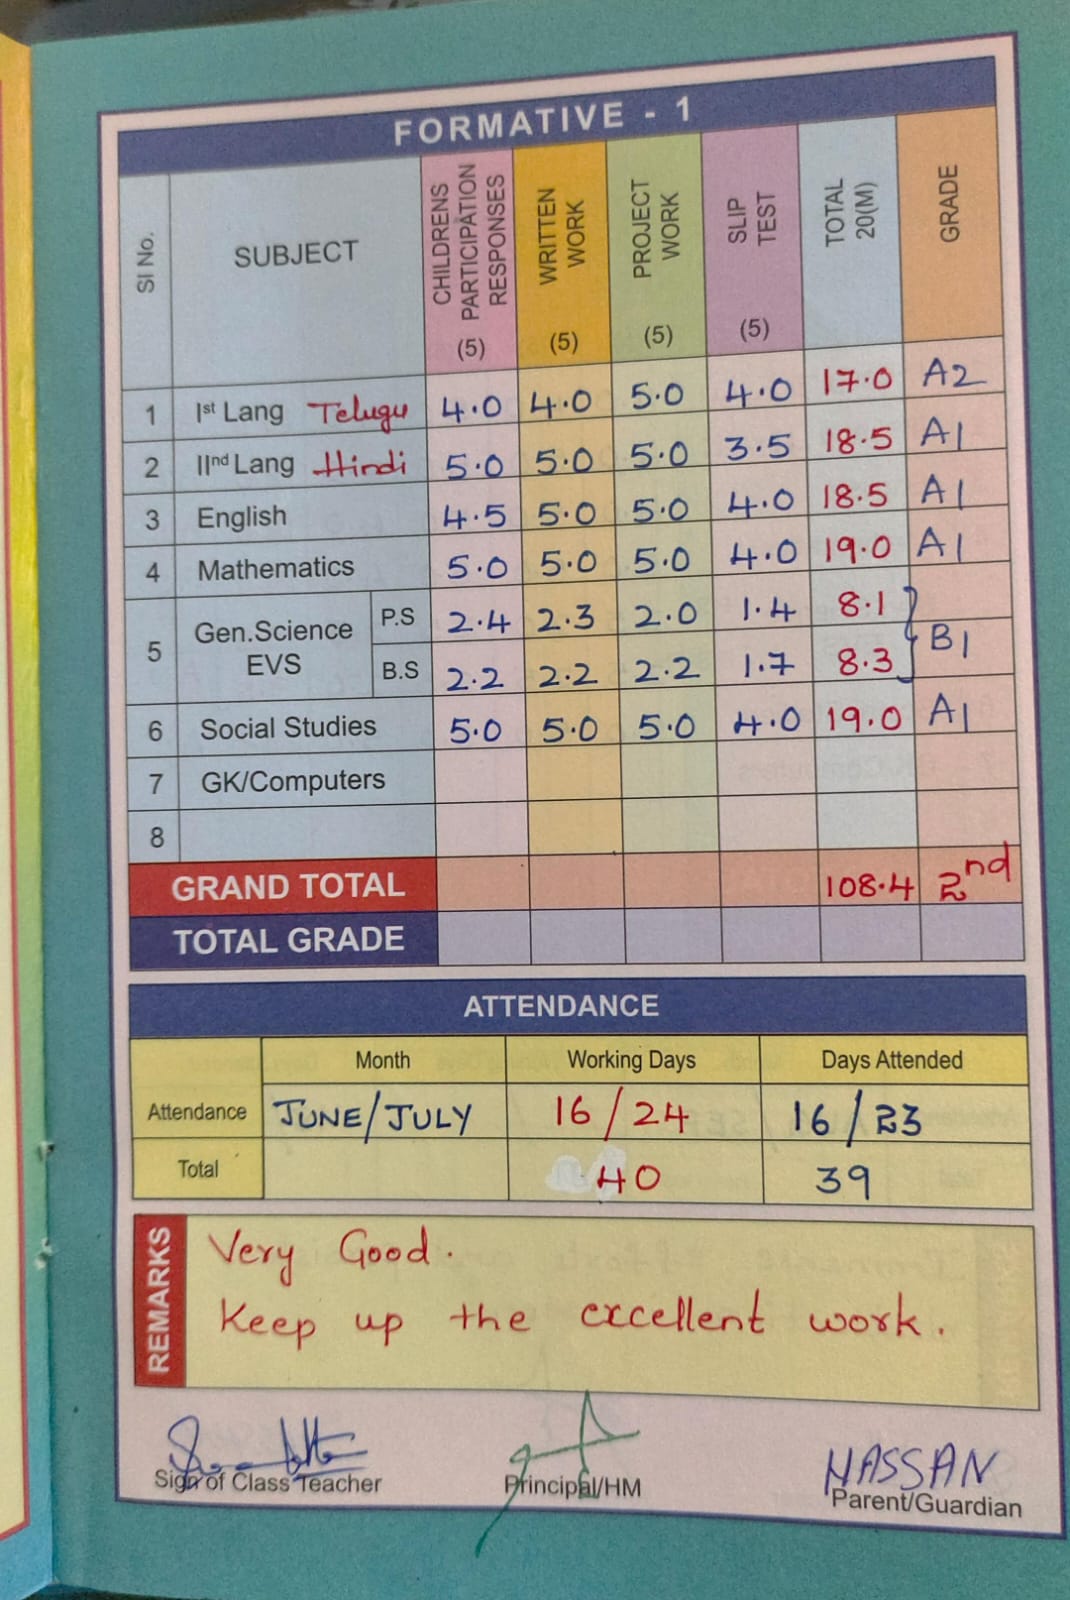 FORMATIVE - 1
SI No. SUBJECT CHILDRENS PARTICIPATION RESPONSES (5) WRITTEN WORK (5) PROJECT WORK (5) SLIP TEST (5) TOTAL 20(M) GRADE
1 Ist Lang Telugu 4.0 4.0 5.0 4.0 17.0 A2
2 IInd Lang Hindi 5.0 5.0 5.0 3.5 18.5 A1
3 English 4.5 5.0 5.0 4.0 18.5 A1
4 Mathematics 5.0 5.0 5.0 4.0 19.0 A1
5 Gen.Science EVS P.S 2.4 2.3 2.0 1.4 8.1
B.S 2.2 2.2 2.2 1.7 8.3 B1
6 Social Studies 5.0 5.0 5.0 4.0 19.0 A1
7 GK/Computers
8
GRAND TOTAL 108.4 2nd
TOTAL GRADE
ATTENDANCE
Month Working Days Days Attended
Attendance JUNE/JULY 16/24 16/23
Total 40 39
REMARKS
Very Good.
Keep up the excellent work.
HASSAN
Sign of Class Teacher Principal/HM Parent/Guardian